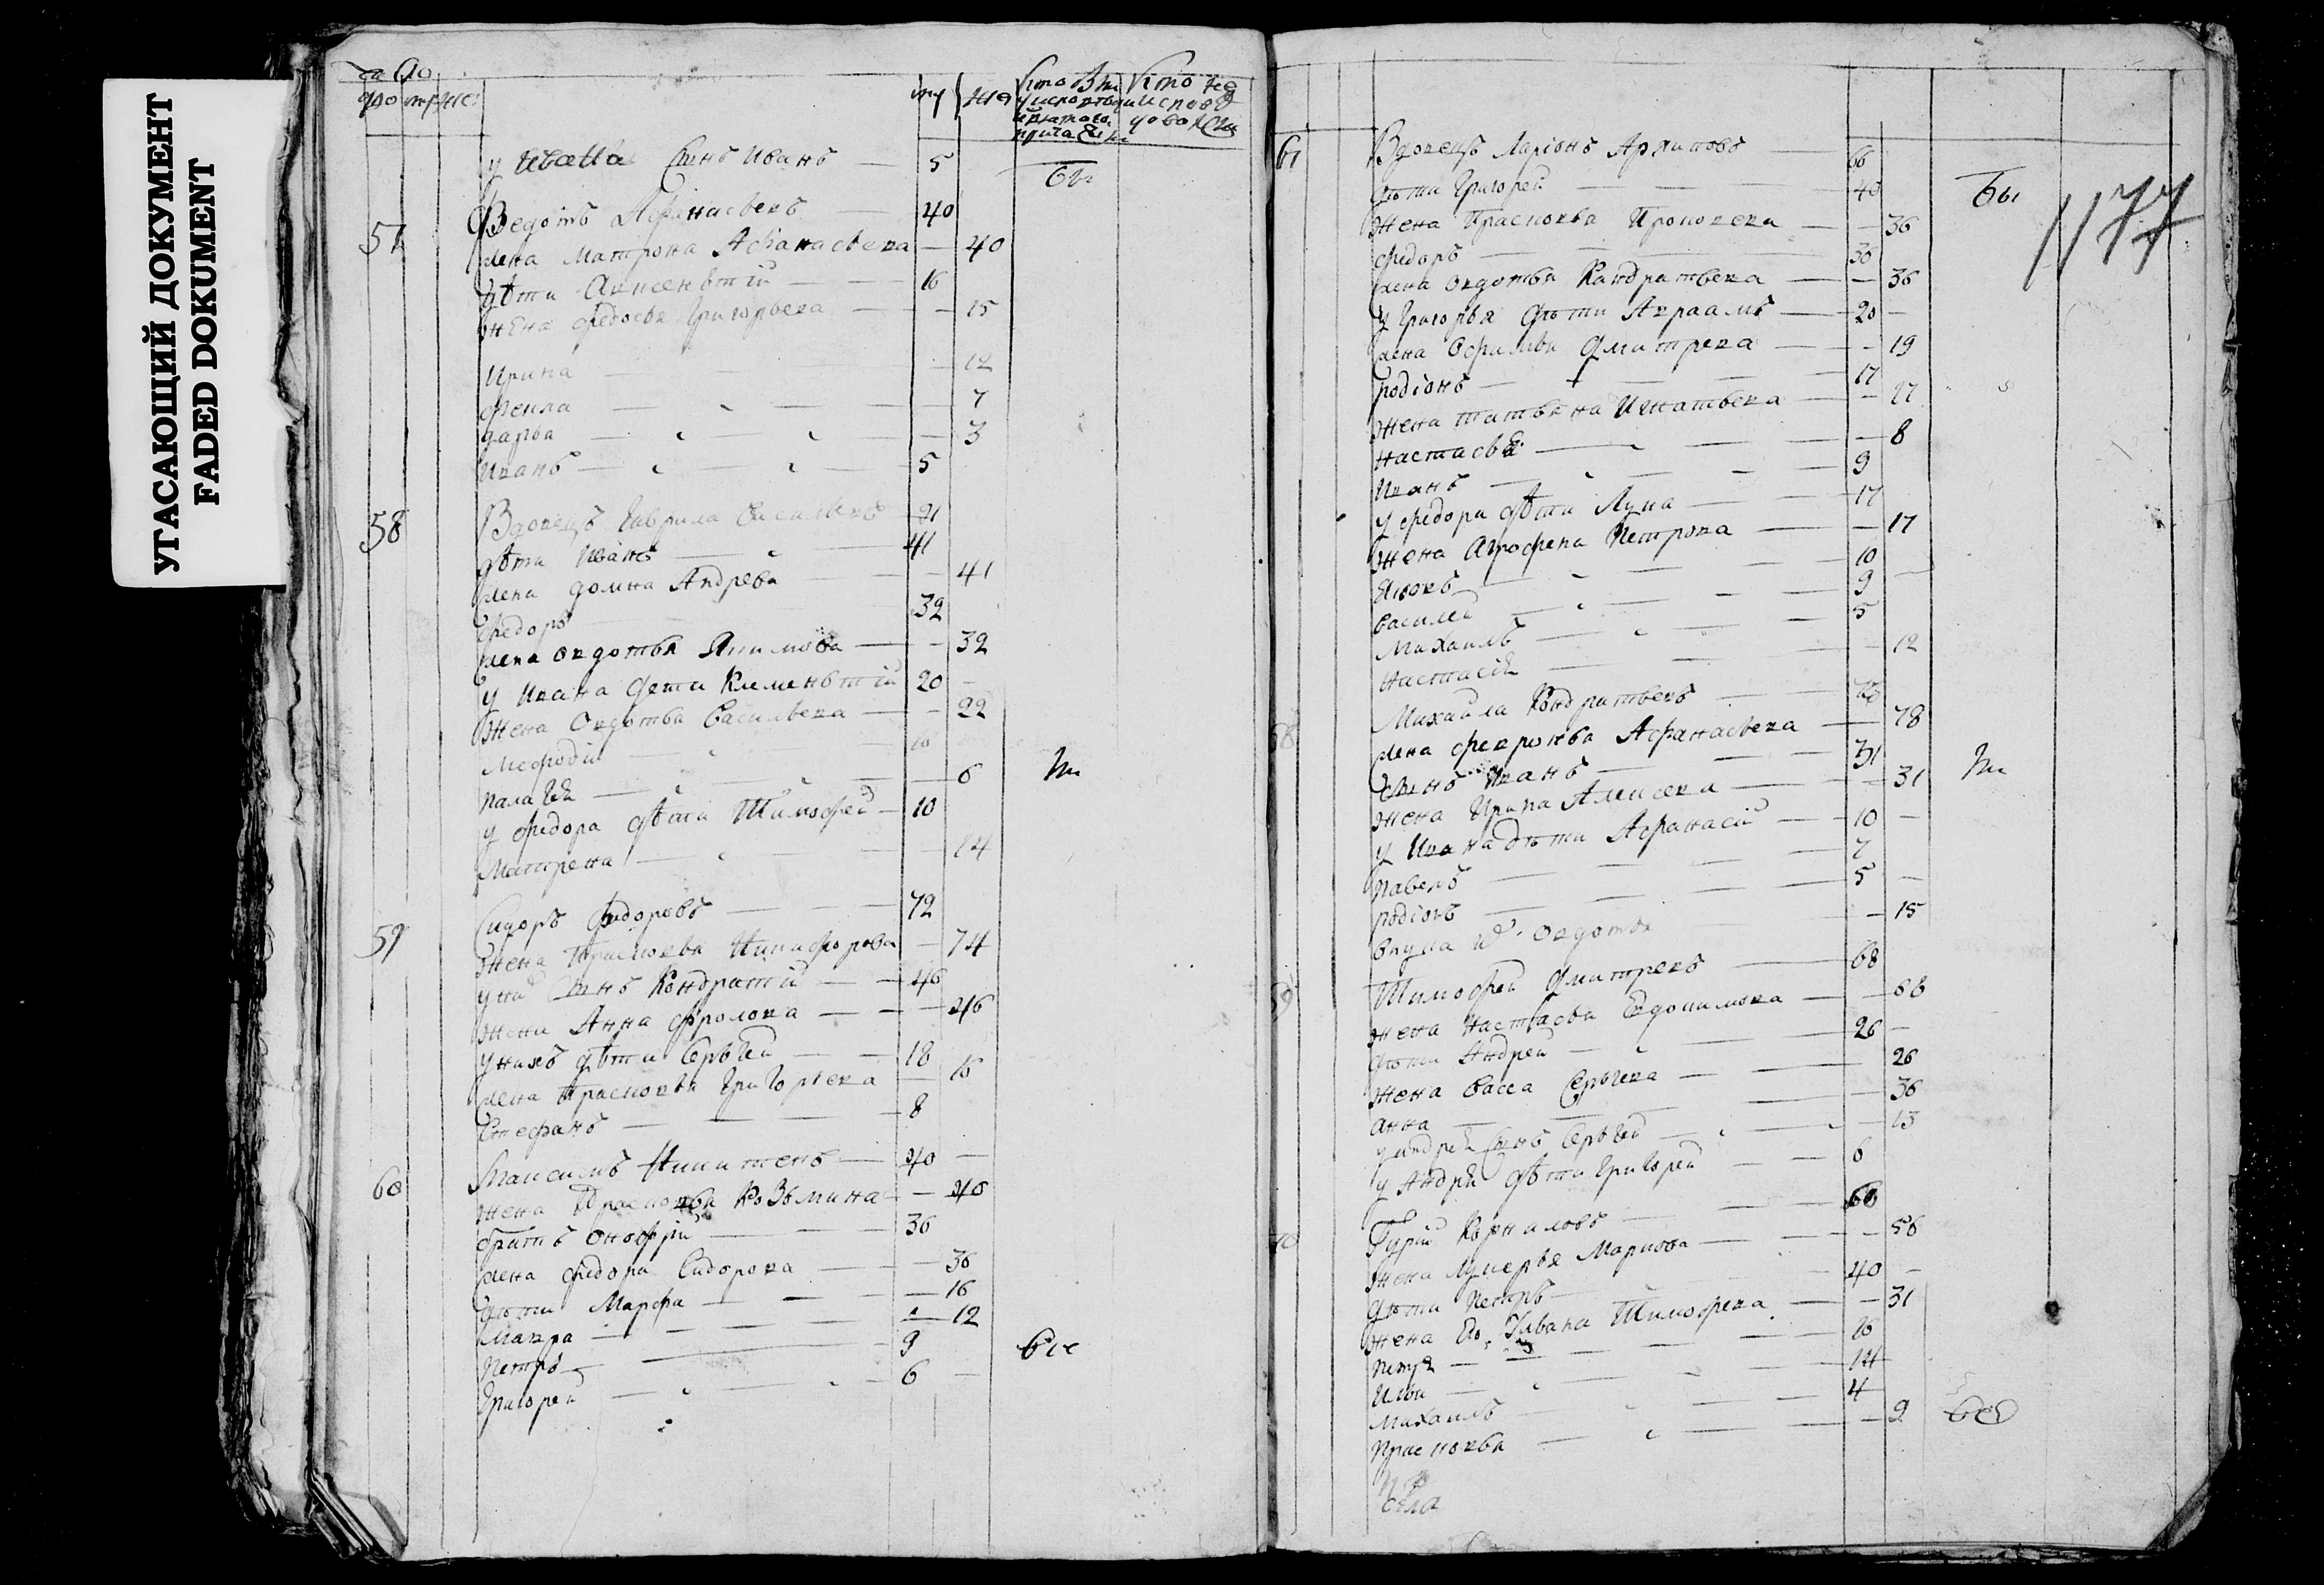 УГАСАЮЩИЙ ДОКУМЕНТ
FADED DOKUMENT
му же
у Ивана Сынъ Иванъ 5
57 Ведотъ Афанасьевъ 40
жена Матрона Афанасьева 40
дѣти Авксеньтій 16
жена федосья Григорьева 15
Ирина 12
фекла 7
дарья 3
Иванъ 5
58 Вдовецъ Гаврила Васильевъ
дѣти Иванъ 41
жена домна Андрева 41
федоръ 32
жена овдотья Якимова 32
у Ивана дети Клеменьтій 20
жена Овдотья Васильева 22
Мефодій
палагея 6
у федора дѣти Тимофей 10
Матрена 14
59 Сидоръ федоровъ 72
жена Прасковья Никифорова 74
Сынъ Кондратій 46
жена Анна фролова 46
у нихъ дѣти Сергѣй 18
жена Прасковья Григорьева 16
Стефанъ 8
60 Максимъ Никитенъ 40
жена Прасковья Козьмина 40
братъ Онофрій 36
жена федора Сидорова 36
дѣти Марфа 16
Мавра 12
петръ 9
Григорей 6
61 Вдовецъ Ларіонъ Архиповъ 66
дѣти Григорей 40
жена Прасковья 36
федоръ 36
жена овдотья Кандратьева 36
у Григорья дѣти Авраамъ 20
жена Офимья дмитрева 19
родіонъ 17
жена татьяна Игнатьева 17
настасья 8
Иванъ 9
у федора дѣти Лука 17
жена Агрофена Петрова 17
Яковъ 10
василей 9
Михаилъ 5
настасія 12
58 Михайла Кондратьевъ
жена февронья Афанасьева 78
Сынъ Иванъ 31
жена Ирина Алексева 31
у Ивана дѣти Афанасій 10
павелъ 7
родіонъ 5
овдотья 15
59 Тимофей дмитревъ 68
жена настасья Евдокимова 68
дѣти Андрей 26
жена васса Сергѣева 26
анна 36
Сынъ Сергѣй 13
у Андрея дѣти Григорей 6
Гурій Корниловъ 60
жена Лукерья Маркова 56
дѣти петръ 40
жена Тимофева 31
петръ 16
Илья 14
Михаилъ 4
прасковья 2
села